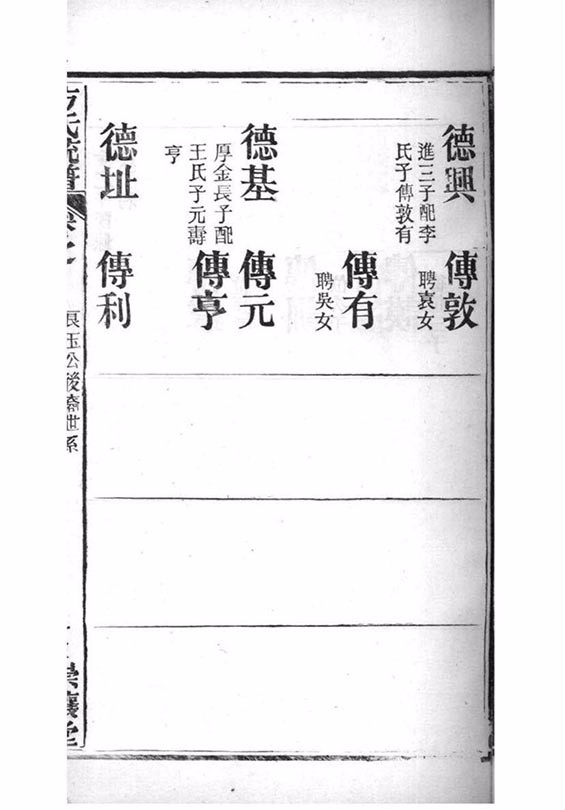 德興
進三子配李
氏子傳敦有
傳敦
聘袁女
傳有
聘吳女
德基
厚金長子配
王氏子元壽
亨
傳元
傳亨
德址
傳利
良玉公後裔世系